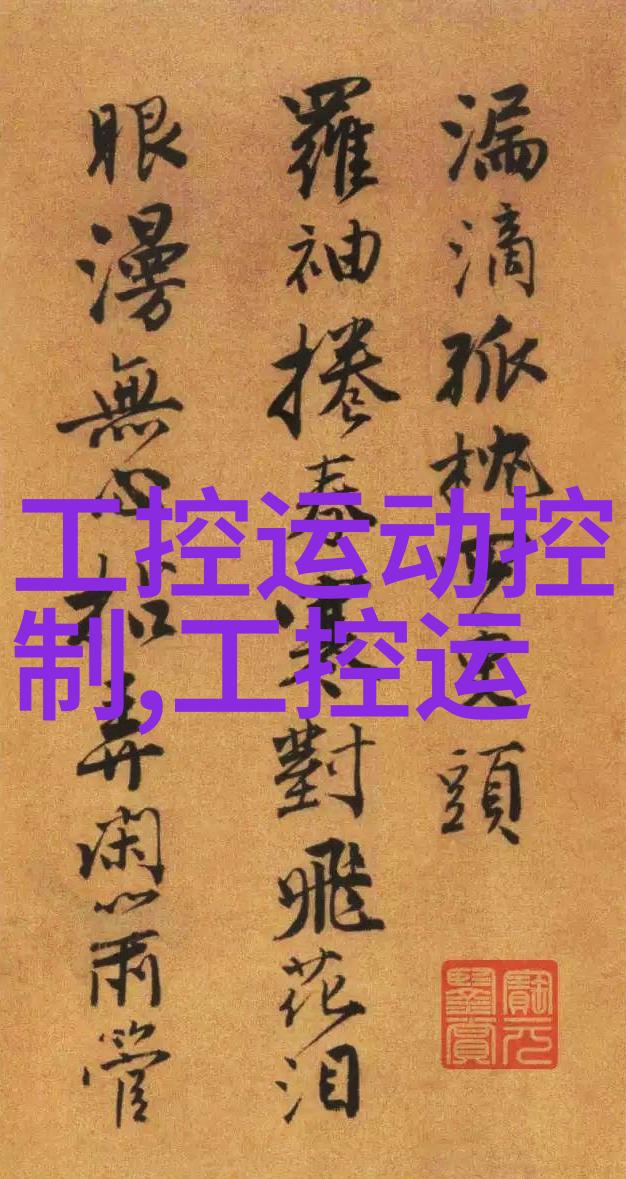 漏滴孤枕頭
羅袖捲春寒對飛花泪
眼漫無心弄閑管
工控运动控
制,工控运